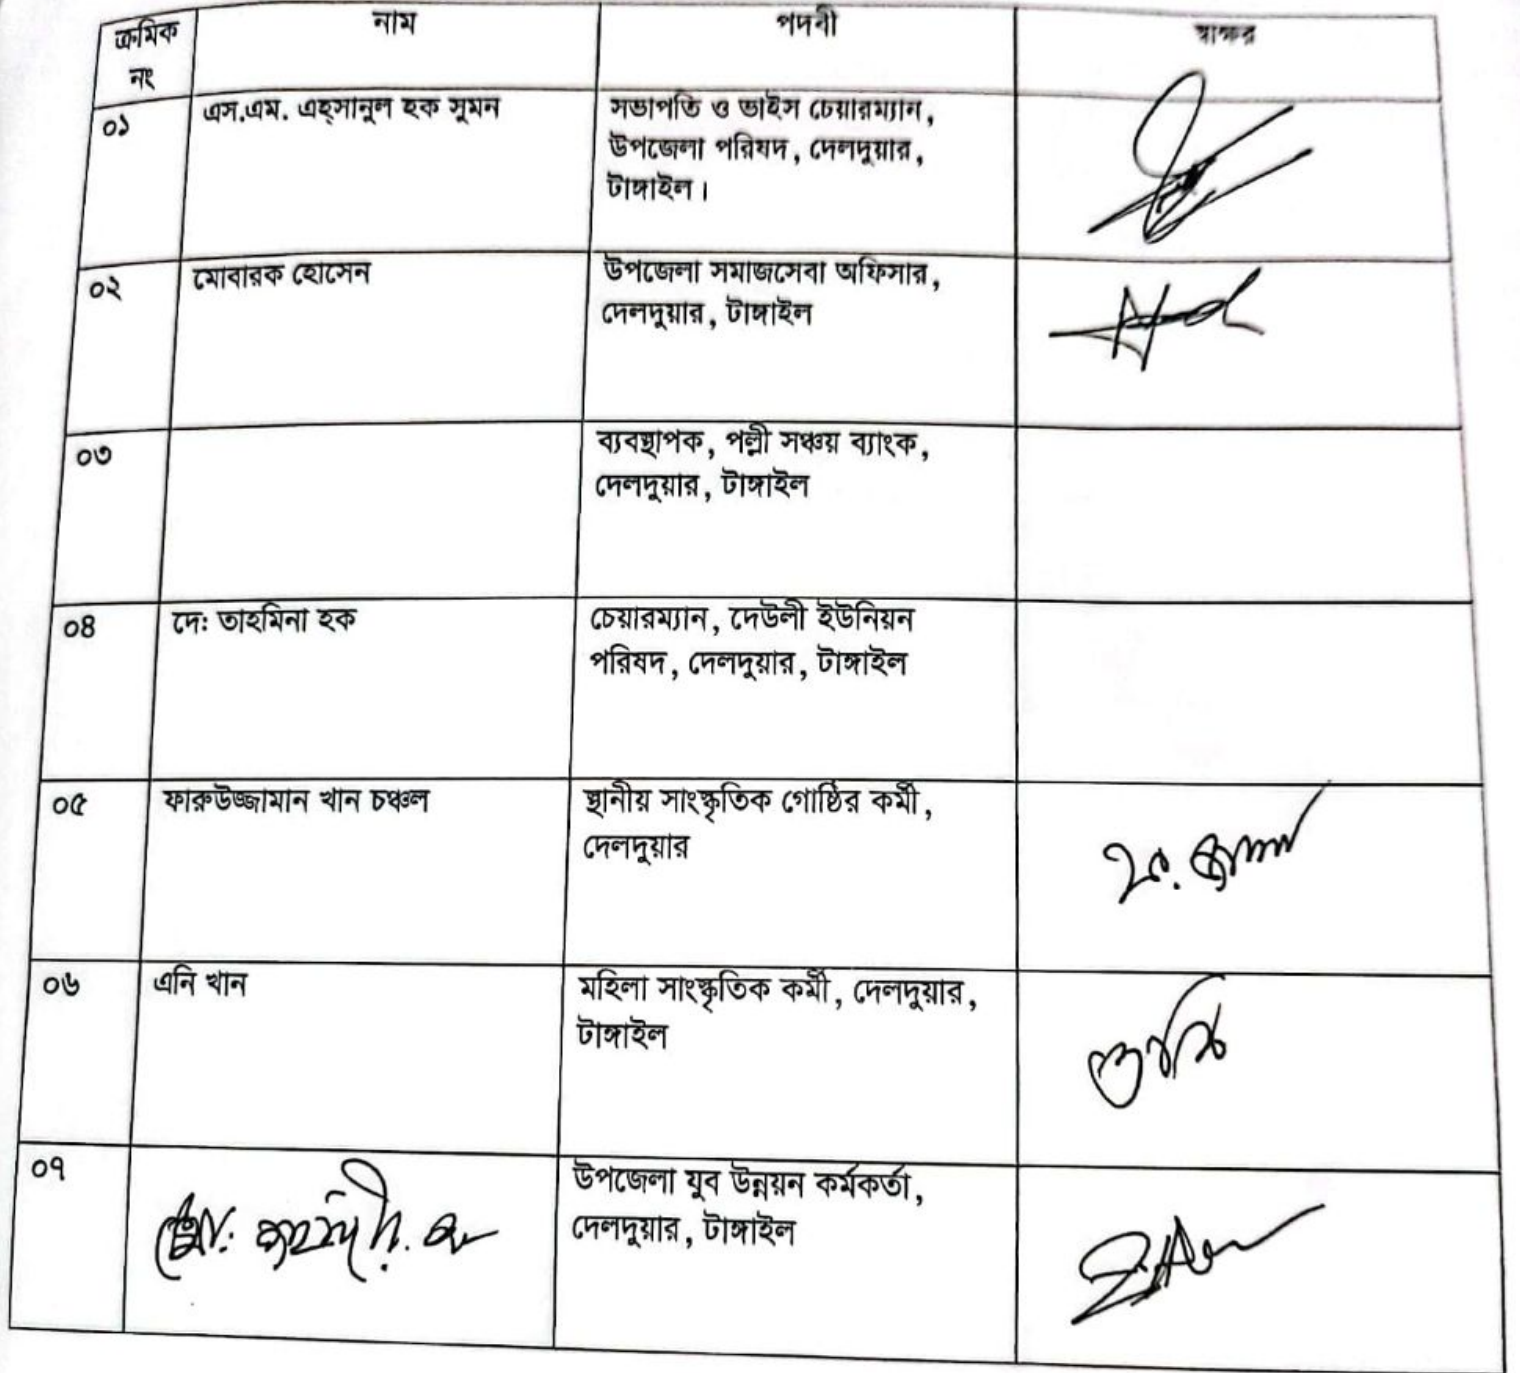 ক্রমিক নং নাম পদবী স্বাক্ষর
০১ এস.এম. এহ্সানুল হক সুমন সভাপতি ও ভাইস চেয়ারম্যান,
উপজেলা পরিষদ, দেলদুয়ার,
টাঙ্গাইল।
০২ মোবারক হোসেন উপজেলা সমাজসেবা অফিসার,
দেলদুয়ার, টাঙ্গাইল
০৩ ব্যবস্থাপক, পল্লী সঞ্চয় ব্যাংক,
দেলদুয়ার, টাঙ্গাইল
০৪ দে: তাহমিনা হক চেয়ারম্যান, দেউলী ইউনিয়ন
পরিষদ, দেলদুয়ার, টাঙ্গাইল
০৫ ফারুউজ্জামান খান চঞ্চল স্থানীয় সাংস্কৃতিক গোষ্ঠির কর্মী,
দেলদুয়ার
০৬ এনি খান মহিলা সাংস্কৃতিক কর্মী, দেলদুয়ার,
টাঙ্গাইল
০৭ মো: উপজেলা যুব উন্নয়ন কর্মকর্তা,
দেলদুয়ার, টাঙ্গাইল